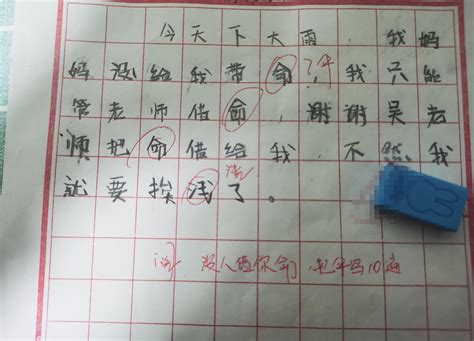 今天下大雨，我妈
妈没给我带命，我只能
伞
管老师借命，谢谢吴老
师把命借给我，不然我
就要挨浅了。
没人要你命 把伞写10遍